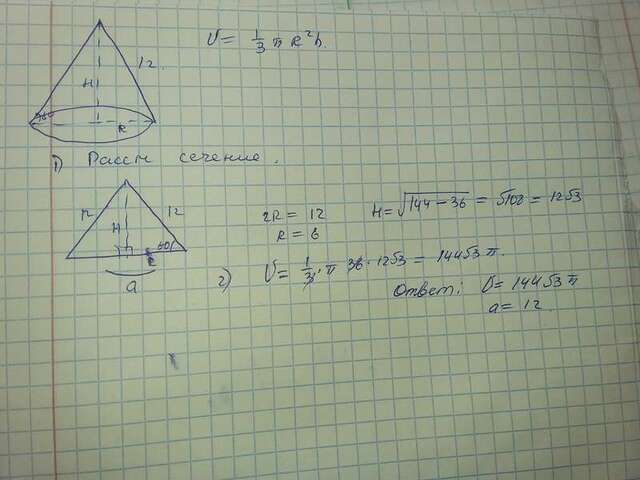 60°
H
R
12
V = 1/3 π R² h.
1) Рассм сечение.
12
H
12
60°
a
2R = 12
R = 6
H = √144 − 36 = √108 = 12√3
2) V = 1/3 · π 36 · 12√3 = 144√3 π.
Ответ: V = 144√3 π
a = 12